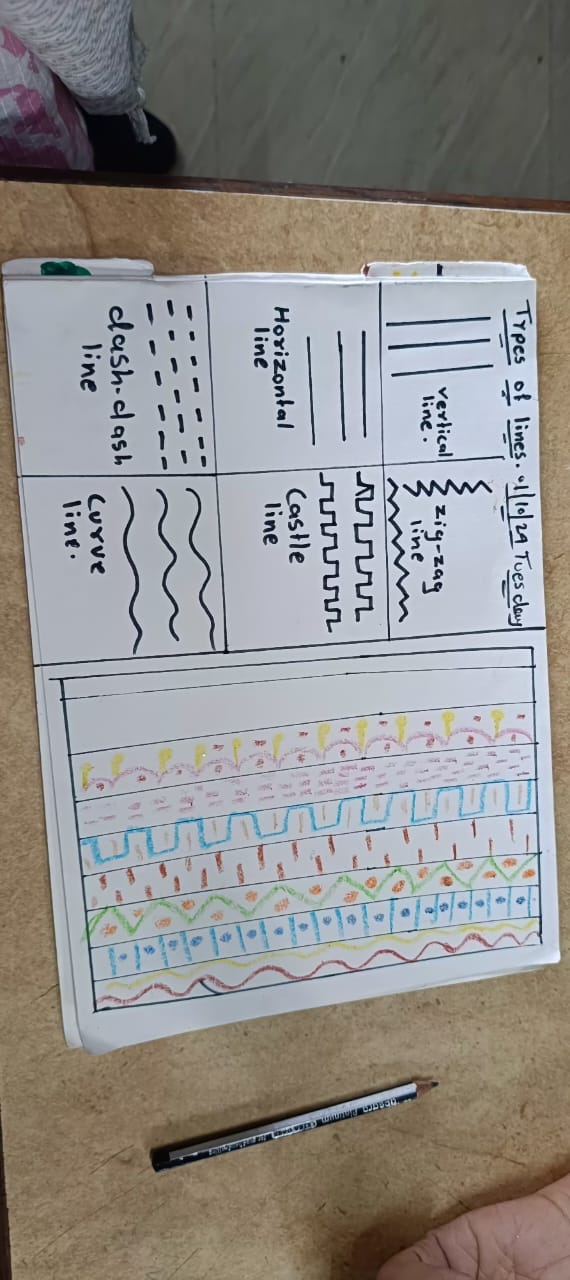 Types of lines. 01/10/24 Tuesday
vertical
line.
zig-zag
line
Horizontal
line
Castle
line
dash-dash
line
Curve
line.
Apsara Platinum